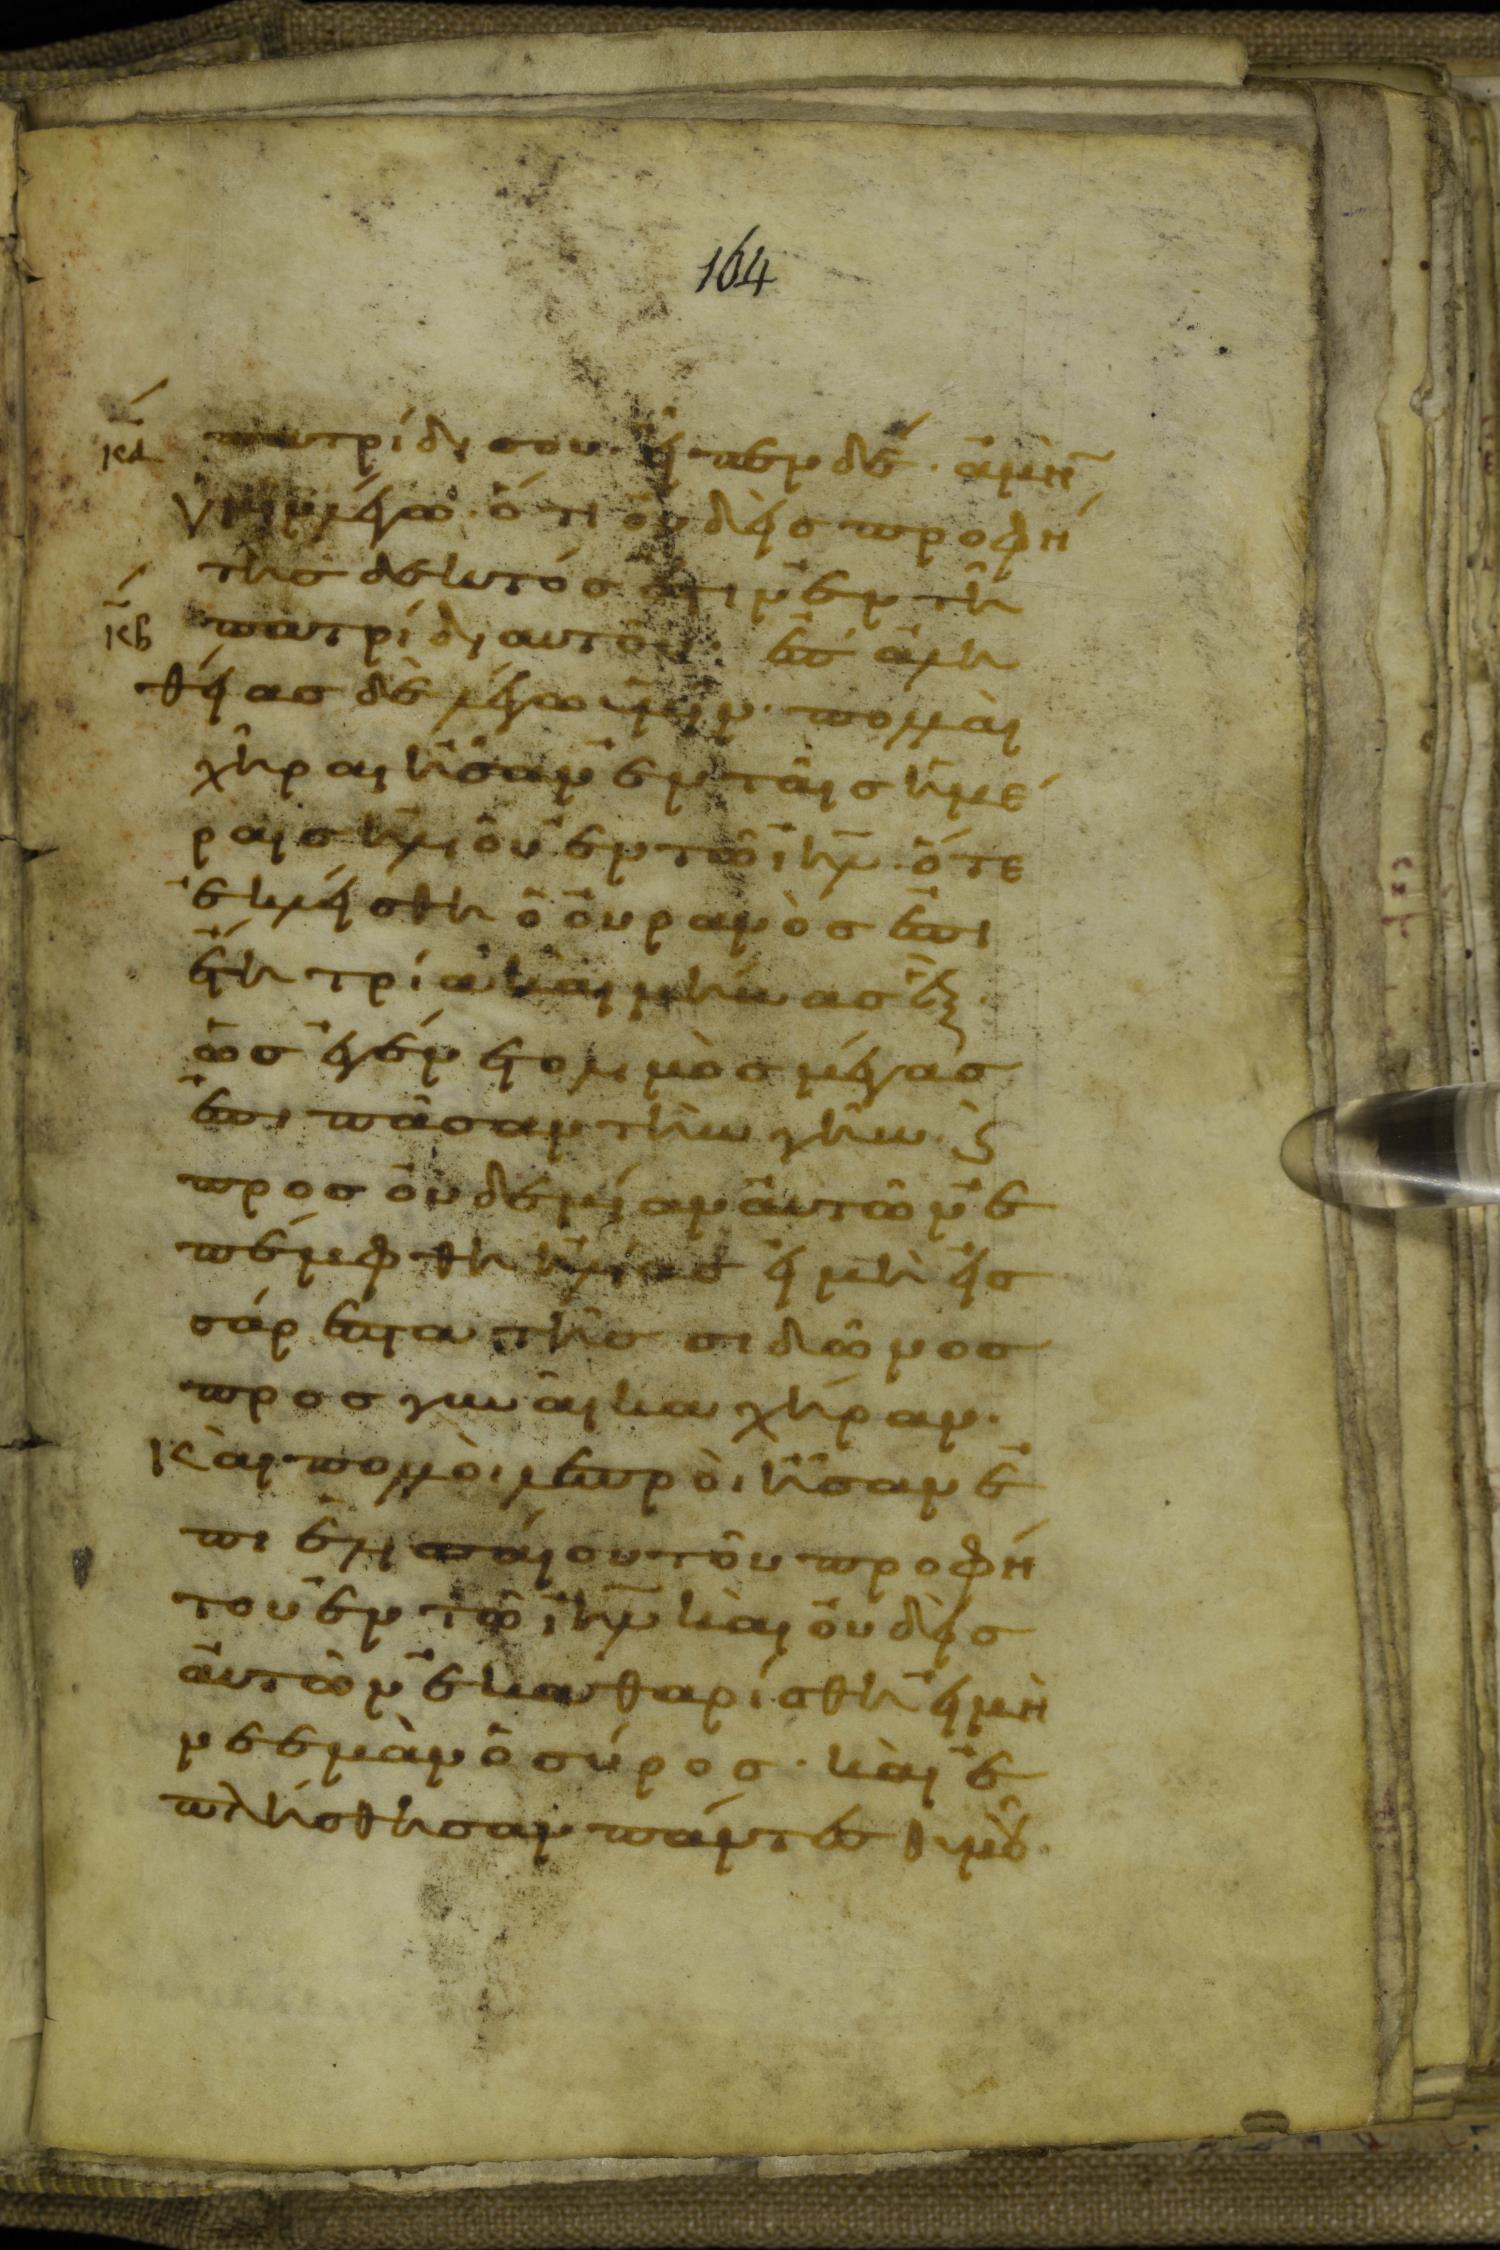 164
κα πατρίδι σου· εἶπεν δέ· ἀμὴν
ὑμῖν λέγω· ὅτι οὐδεὶς προφή
της δεκτός ἐστιν ἐν τῆ
κβ πατρίδι αὐτοῦ· ἐπ' ἀλη
θείας δὲ λέγω ὑμῖν· πολλαὶ
χῆραι ἦσαν ἐν ταῖς ἡμέ
ραις ἠλιοὺ ἐν τῶ ιηλ· ὅτε
ἐκλείσθη ὁ οὐρανὸς ἐπι
ἔτη τρία καὶ μῆνας ἕξ·
ὡς ἐγένετο λιμὸς μέγας
ἐπι πᾶσαν τὴν γῆν· ϗ
προς οὐδεμίαν αὐτῶν ἐ
πέμφθη ἠλίας εἰ μὴ εἰς
σάρεπτα τῆς σιδῶνος
προς γυναῖκα χήραν·
Καὶ πολλοὶ λεπροὶ ἦσαν ἐ
πι ἐλισσαίου τοῦ προφή
του ἐν τῶ ιηλ καὶ οὐδεὶς
αὐτῶν ἐκαθαρίσθη εἰ μὴ
νεεμὰν ὁ σύρος· καὶ ἐ
πλήσθησαν πάντες θυμοῦ·